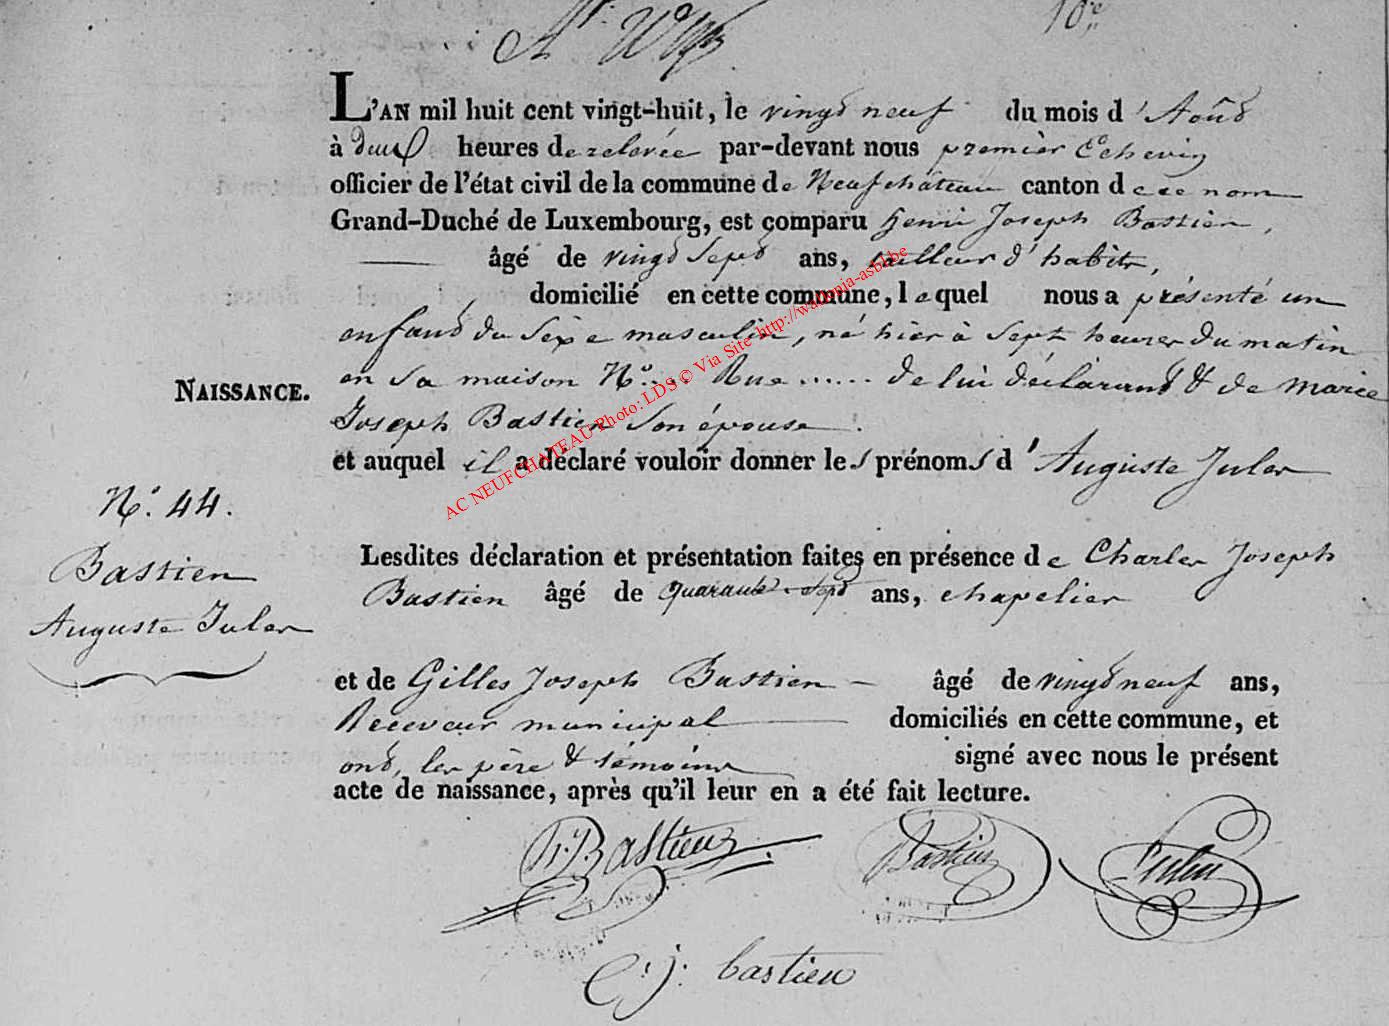 10.e
L'AN mil huit cent vingt-huit, le vingt neuf du mois d'Août
à deux heures de relevée par-devant nous premier Echevin
officier de l'état civil de la commune de Neufchâteau canton de ce nom
Grand-Duché de Luxembourg, est comparu henri Joseph Bastien,
âgé de vingt Sept ans, tailleur d'habits,
domicilié en cette commune, lequel nous a présenté un
enfant du Sexe masculin, né hier à Sept heures du matin
NAISSANCE. en Sa maison N°.... Rue ...... de lui déclarant & de Marie
Joseph Bastien Son épouse.
et auquel il a déclaré vouloir donner les prénoms d'Auguste Jules
N°. 44.
Bastien
Auguste Jules
Lesdites déclaration et présentation faites en présence de Charles Joseph
Bastien âgé de quarante-sept ans, chapelier
et de Gilles Joseph Bastien âgé de vingt neuf ans,
Receveur municipal domiciliés en cette commune, et
ont, les père & témoins signé avec nous le présent
acte de naissance, après qu'il leur en a été fait lecture.
h.J. Bastien Bastien
C. j. bastien
AC NEUFCHATEAU Photo: LDS © Via Site http://wallonia-asbl.be